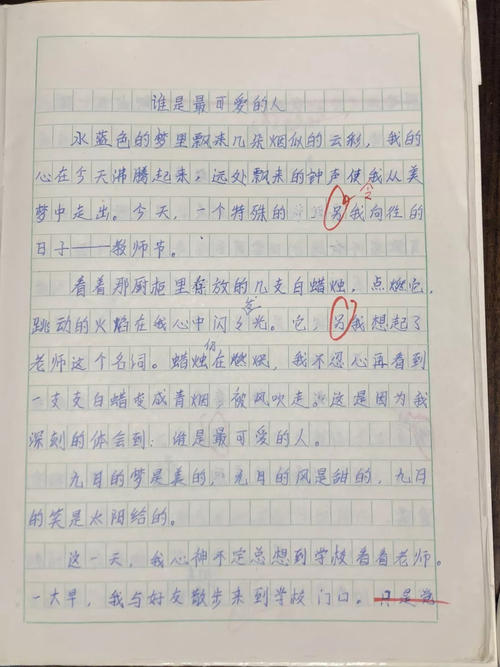 谁是最可爱的人
水蓝色的梦里飘来几朵烟似的云彩，我的
心在今天沸腾起来，远处飘来的钟声使我从美
梦中走出。今天，一个特殊的 另我向往的
令
日子——教师节。
看着那厨柜里存放的几支白蜡烛，点燃它，
跳动的火焰在我心中闪光。它 另我想起了
老师这个名词。蜡烛仍在燃烧，我不忍心再看到
一支支白蜡变成青烟 被风吹走。这是因为我
深刻的体会到：谁是最可爱的人。
九月的梦是美的，九月的风是甜的，九月
的笑是太阳给的。
这一天，我心神不定总想到学校看看老师。
一大早，我与好友散步来到学校门口。只是觉